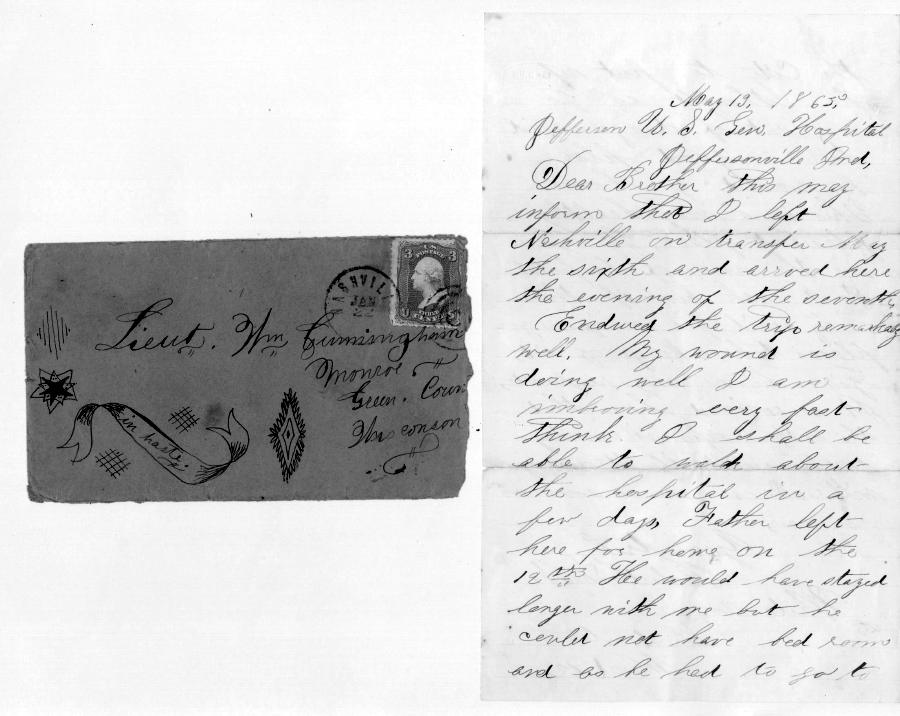 NASHVILL
JAN
22
U.S.
POSTAGE
3 3
CENTS
Lieut. Wm Cunningham
Monroe
Green. Coun
Wisconson
in haste.
May 13, 1865,
Jefferson U. S. Gen. Hospital
Jeffersonville Ind,
Dear Brother this may
inform that I left
Nashville on transfer May
the sixth and arrved here
the evening of the seventh,
Endured the trip remarkably
well. My wound is
doing well I am
imbroving very fast
think I shall be
able to walk about
the hospital in a
few days, Father left
here for home on the
12th He would have stayed
longer with me but he
could not have bed room
and as he had to go to